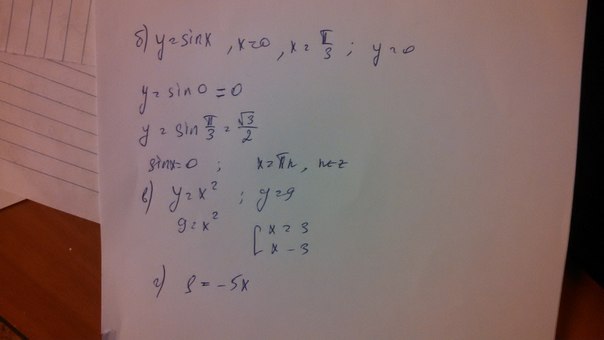 б) y=sinx , x=0 , x = π/3 ; y=0
y = sin 0 = 0
y = sin π/3 = √3/2
sinx=0 ; x=πn, n∈z
в) y=x² ; y=9
9=x² [ x=3
x-3
г) 9 = -5x